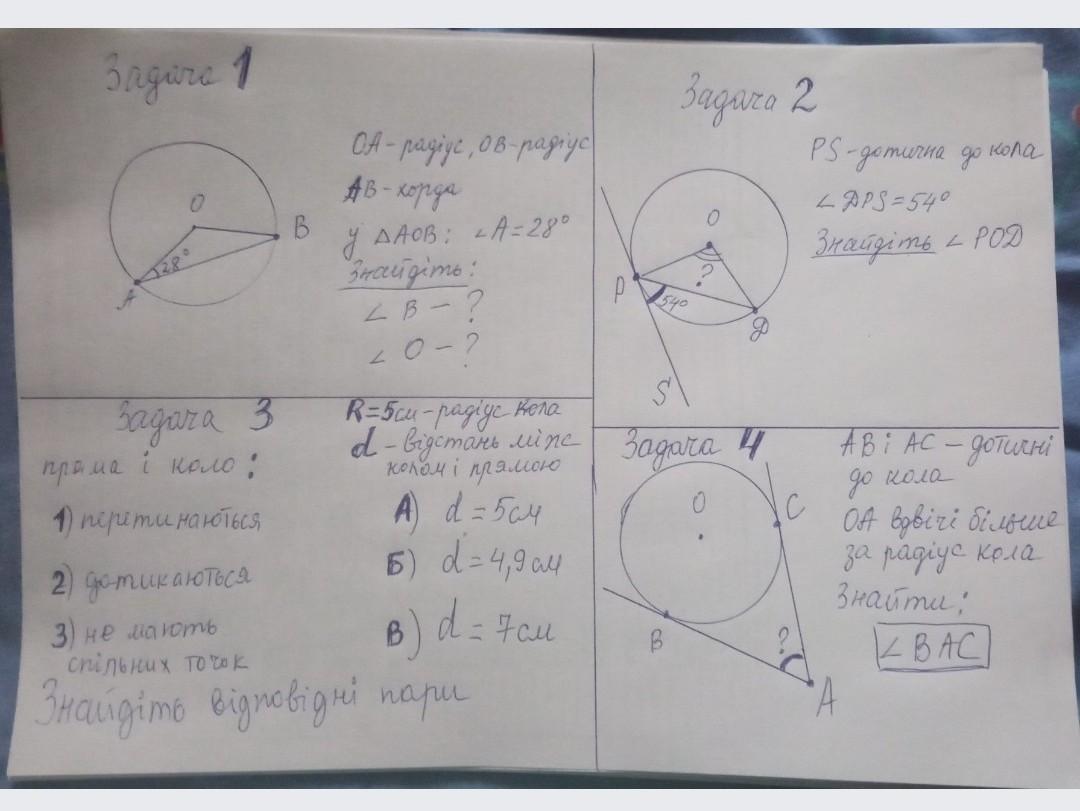 Задача 1
O
B
28°
A
OA-радіус, OB-радіус
AB-хорда
у △AOB: ∠A=28°
Знайдіть:
∠ B - ?
∠ O - ?
Задача 2
O
P
?
54°
D
S
PS-дотична до кола
∠DPS=54°
Знайдіть ∠ POD
Задача 3
пряма і коло:
1) перетинаються
2) дотикаються
3) не мають
спільних точок
R=5см-радіус кола
d -відстань між
колом і прямою
А) d = 5см
Б) d = 4,9см
В) d = 7см
Знайдіть відповідні пари
Задача 4
O
C
B
?
A
AB і AC - дотичні
до кола
OA вдвічі більше
за радіус кола
Знайти:
∠ BAC